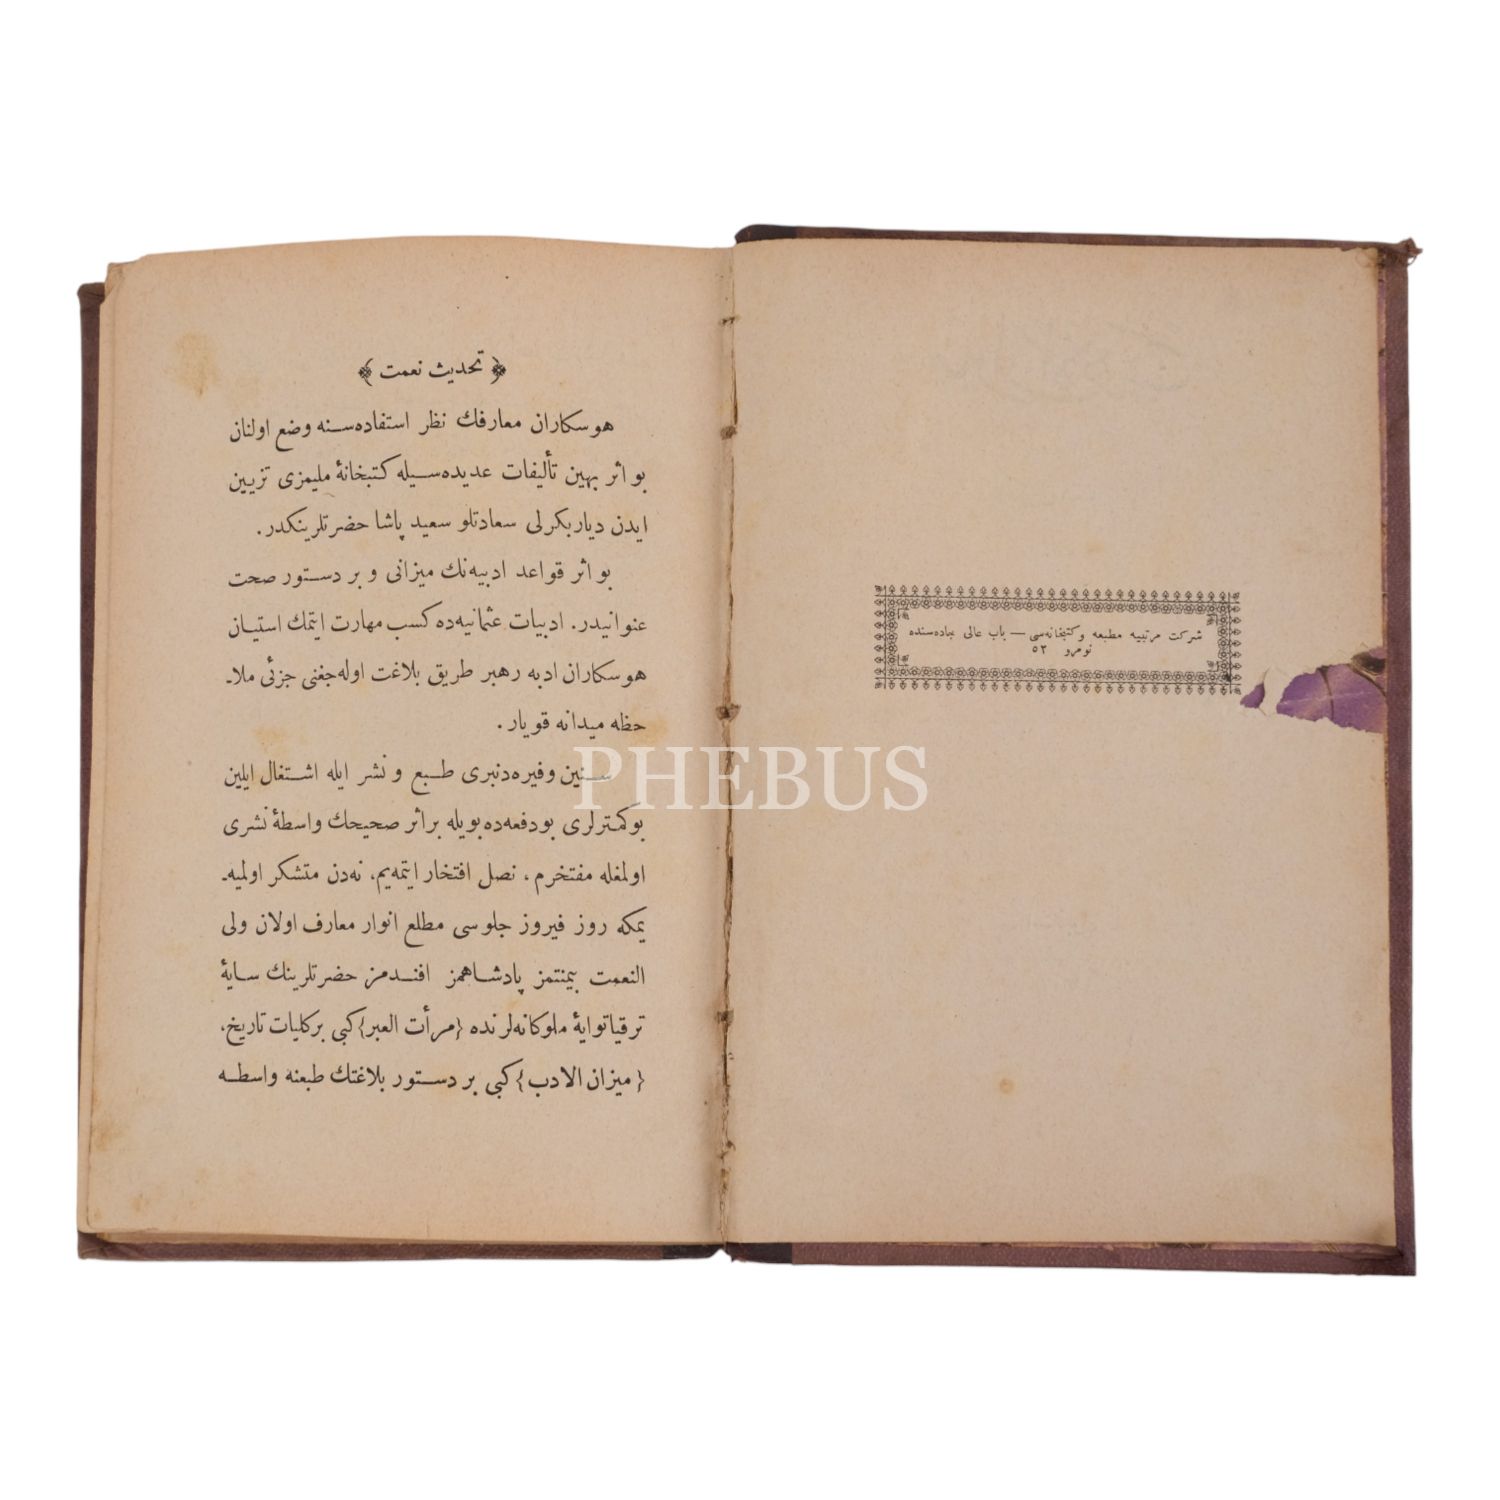 شركت مرتبيه مطبعه وكتبخانه‌سى — باب عالى جاده‌سنده
نومرو ٥٢
﴿ تحديث نعمت ﴾
هوسكاران معارفك نظر استفاده‌سنه وضع اولنان
بو اثر بهين تأليفات عديده‌سيله كتبخانهٔ مليمزى تزيين
ايدن دياربكرلى سعادتلو سعيد پاشا حضرتلرينكدر.
بو اثر قواعد ادبيه‌نك ميزانى و بر دستور صحت
عنوانيدر. ادبيات عثمانيه‌ده كسب مهارت ايتمك استيان
هوسكاران ادبه رهبر طريق بلاغت اوله‌جغنى جزئى ملا-
حظه ميدانه قويار.
سنين وفيره‌دنبرى طبع و نشر ايله اشتغال ايلين
بوكمترلرى بودفعه‌ده بويله براثر صحيحك واسطهٔ نشرى
اولمغله مفتخرم، نصل افتخار ايتمه‌يم، نه‌دن متشكر اولميه-
يمكه روز فيروز جلوسى مطلع انوار معارف اولان ولى
النعمت بيمنتمز پادشاهمز افندمز حضرتلرينك سايهٔ
ترقياتوايهٔ ملوكانه‌لرنده {مرأت العبر} كبى بركليات تاريخ،
{ميزان الادب} كبى بر دستور بلاغتك طبعنه واسطه
PHEBUS